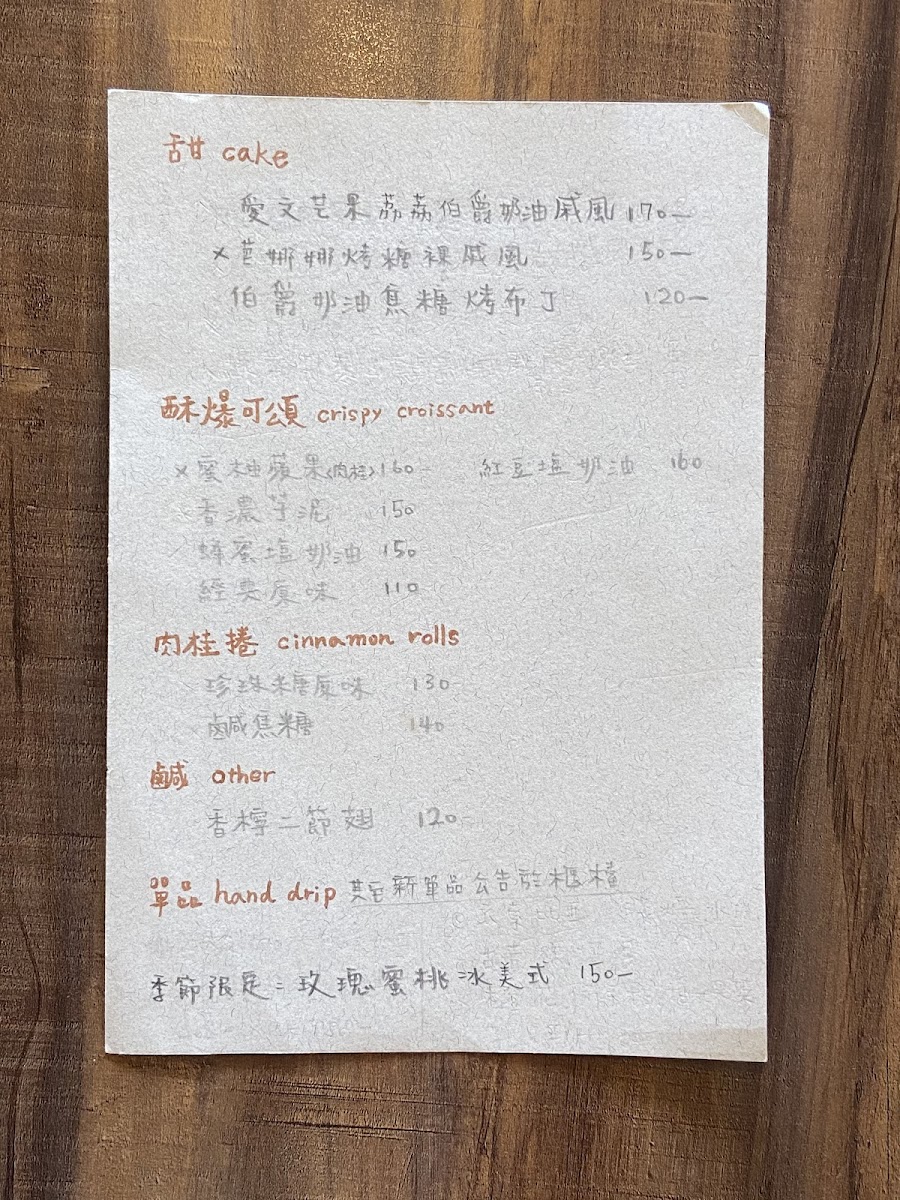 甜 cake
愛文芒果荔荔伯爵奶油戚風 170-
×芭娜娜烤糖裸戚風 150-
伯爵奶油焦糖烤布丁 120-
酥爆可頌 crispy croissant
×蜜柚蘋果(肉桂) 160- 紅豆塩奶油 160
香濃芋泥 150
蜂蜜塩奶油 150
經典原味 110
肉桂捲 cinnamon rolls
珍珠糖原味 130
鹹焦糖 140
鹹 other
香檸二節翅 120
單品 hand drip 其它新單品公告於櫃檯
季節限定：玫瑰蜜桃冰美式 150-